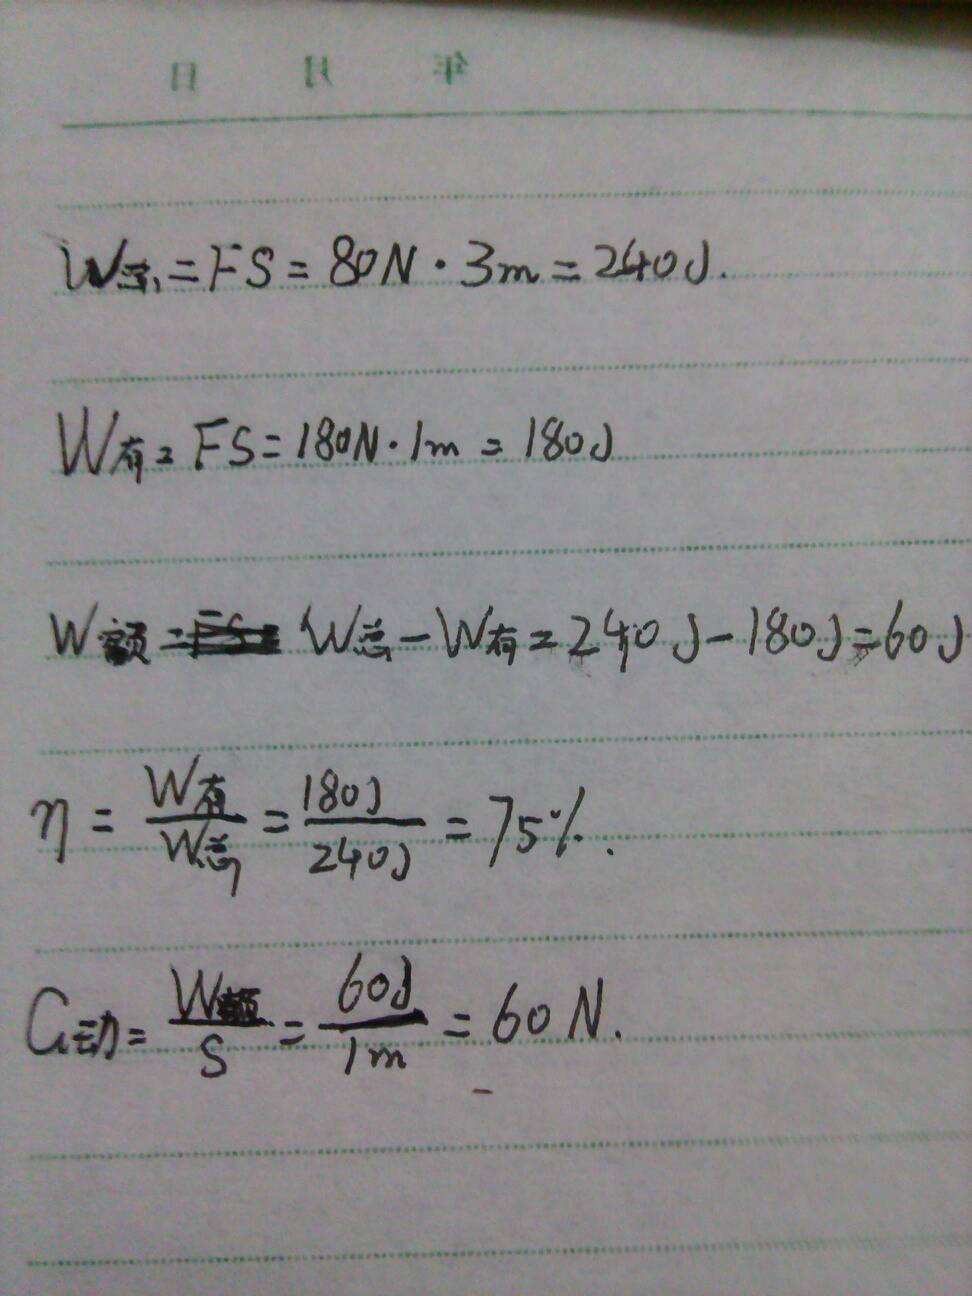 年 月 日
W总=FS=80N·3m=240J.
W有=FS=180N·1m=180J
W额=W总-W有=240J-180J=60J
η=W有/W总=180J/240J=75%.
G动=W额/S=60J/1m=60N.